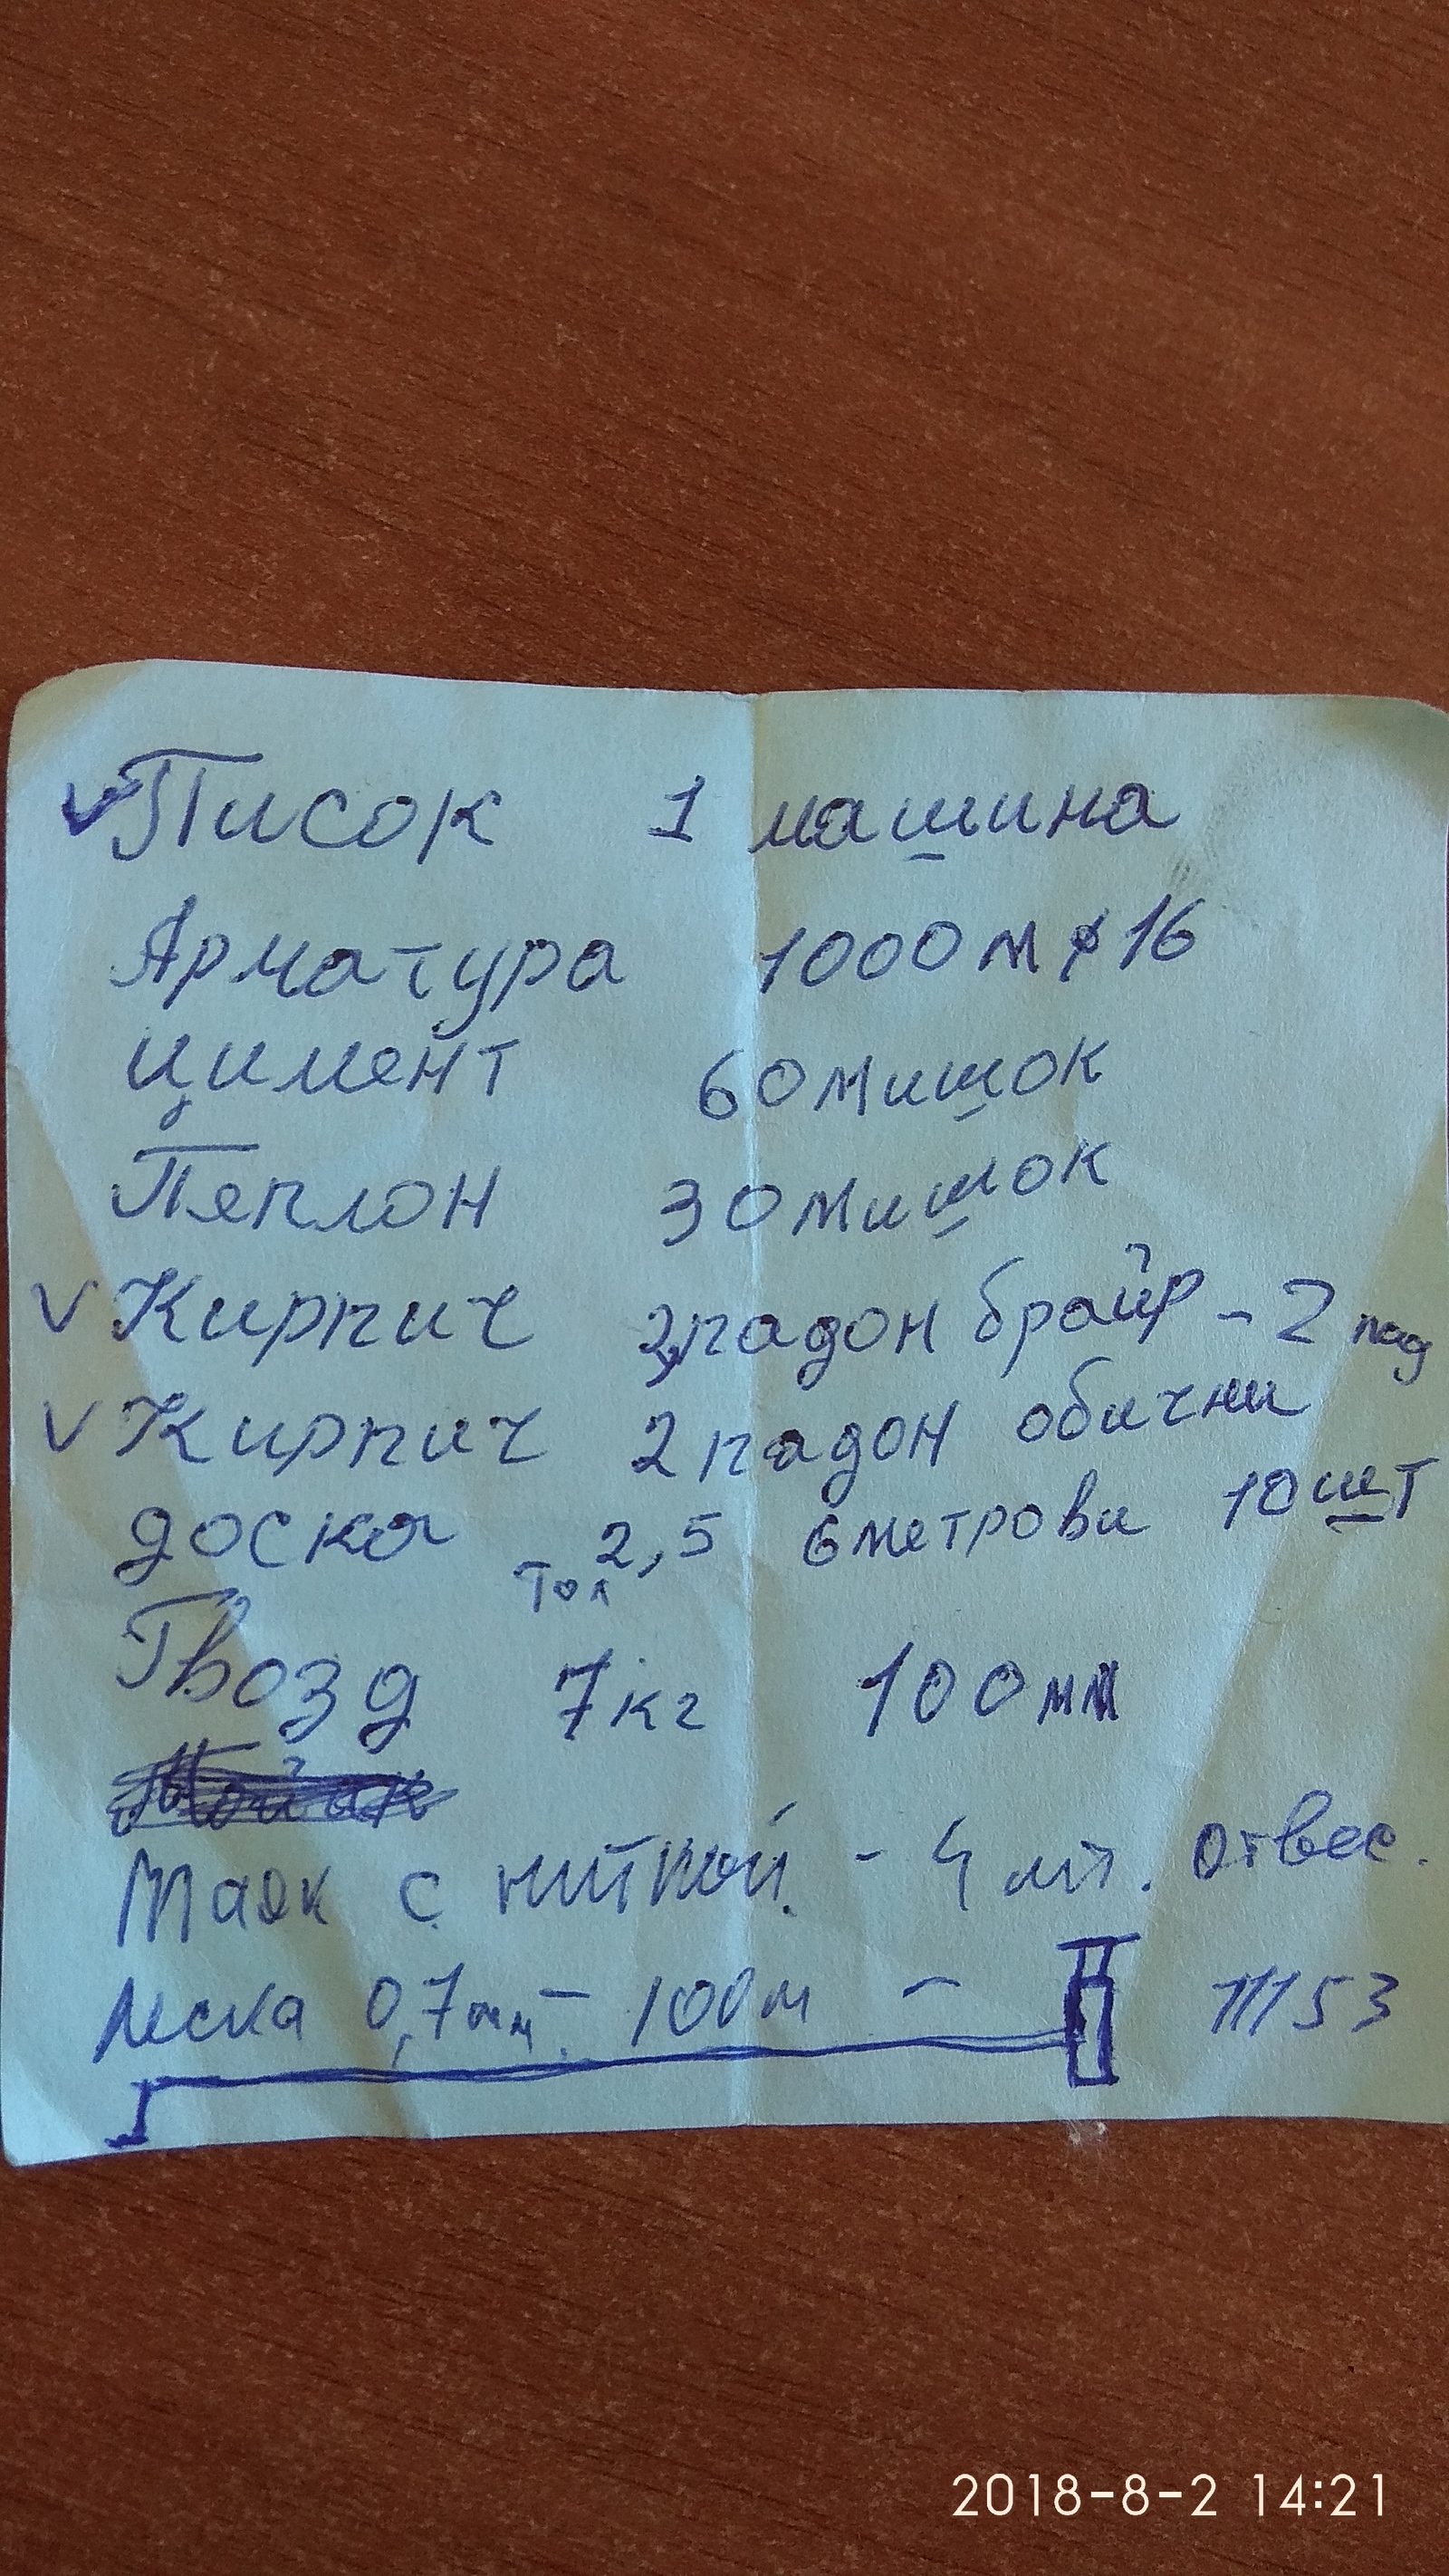 Писок 1 машина
Арматура 1000 м ø16
Цимент 60 мишок
Пеплон 30 мишок
Кирпич 2 падон брайр - 2 пад
Кирпич 2 падон обични
доска тол 2,5 6 метрови 10 шт
Гвозд 7 кг 100 мм
Маяк с ниткой. - 4 шт. Отвес.
Леска 0,7мм - 100м -
2018-8-2 14:21